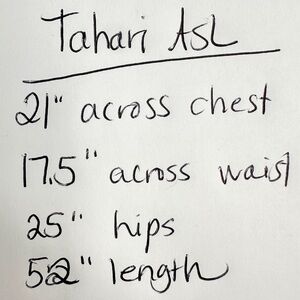 Tahari ASL
21" across chest
17.5" across waist
25" hips
52" length